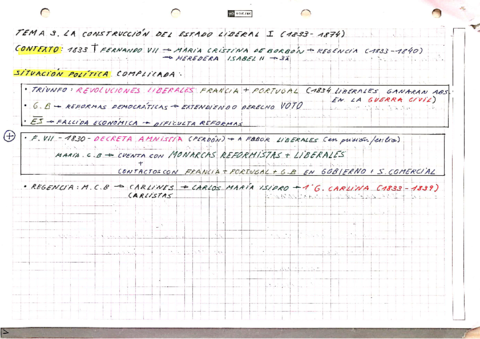 TEMA 3. LA CONSTRUCCIÓN DEL ESTADO LIBERAL I (1833-1874)
CONTEXTO: 1833 † FERNANDO VII → MARÍA CRISTINA DE BORBÓN → REGENCIA (1833-1840)
→ HEREDERA ISABEL II →
SITUACIÓN POLÍTICA COMPLICADA:
• TRIUNFO: REVOLUCIONES LIBERALES FRANCIA + PORTUGAL (1834 LIBERALES GANARAN ABS.
EN LA GUERRA CIVIL)
• G.B → REFORMAS DEMOCRÁTICAS → EXTENDIENDO DERECHO VOTO
• ES → FALLIDA ECONÓMICA → DIFICULTA REFORMAS
• F. VII - 1830 - DECRETA AMNISTIA (PERDÓN) → A FABOR LIBERALES (en prisión/exilio)
MARIA. C.B → CUENTA CON MONARCAS REFORMISTAS + LIBERALES
+
CONTACTOS CON FRANCIA + PORTUGAL + G.B EN GOBIERNO + S. COMERCIAL
• REGENCIA: M.C.B → CARLINES → CARLOS MARÍA ISIDRO → 1ª G. CARLINA (1833-1839)
CARLISTAS